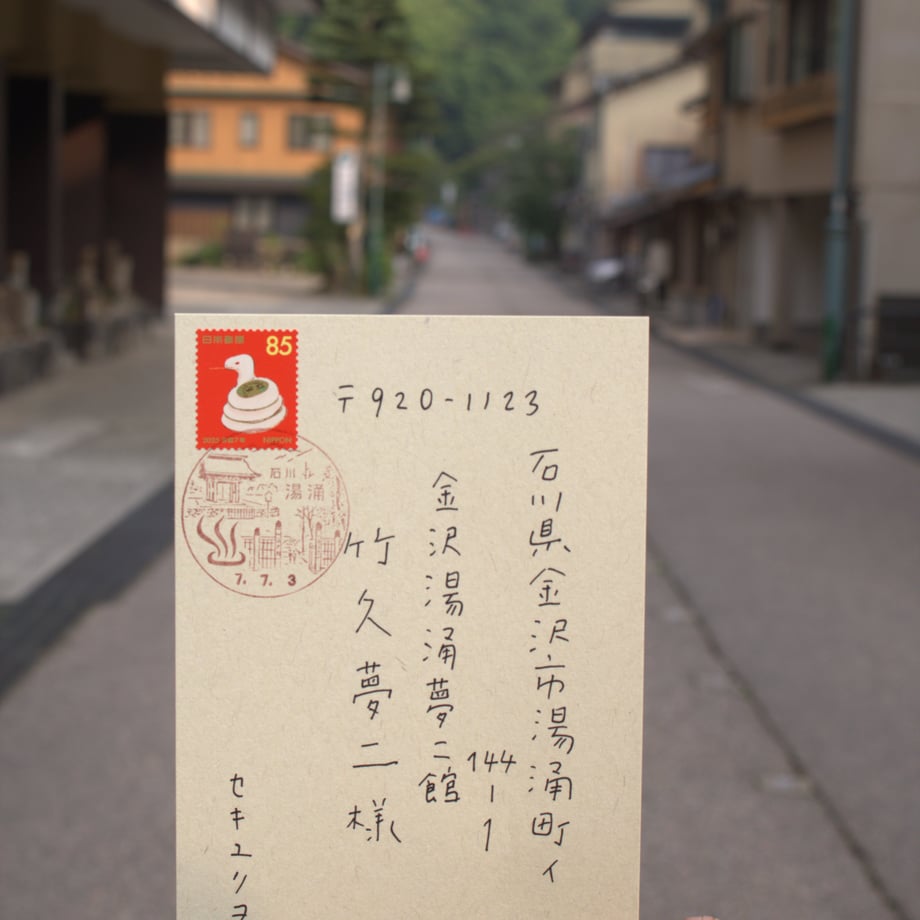 日本郵便
85
2025 令和7年 NIPPON
石川
湯涌
7. 7. 3
〒920-1123
石川県金沢市湯涌町イ
144-1
金沢湯涌夢二館
竹久夢二様
セキユリヲ